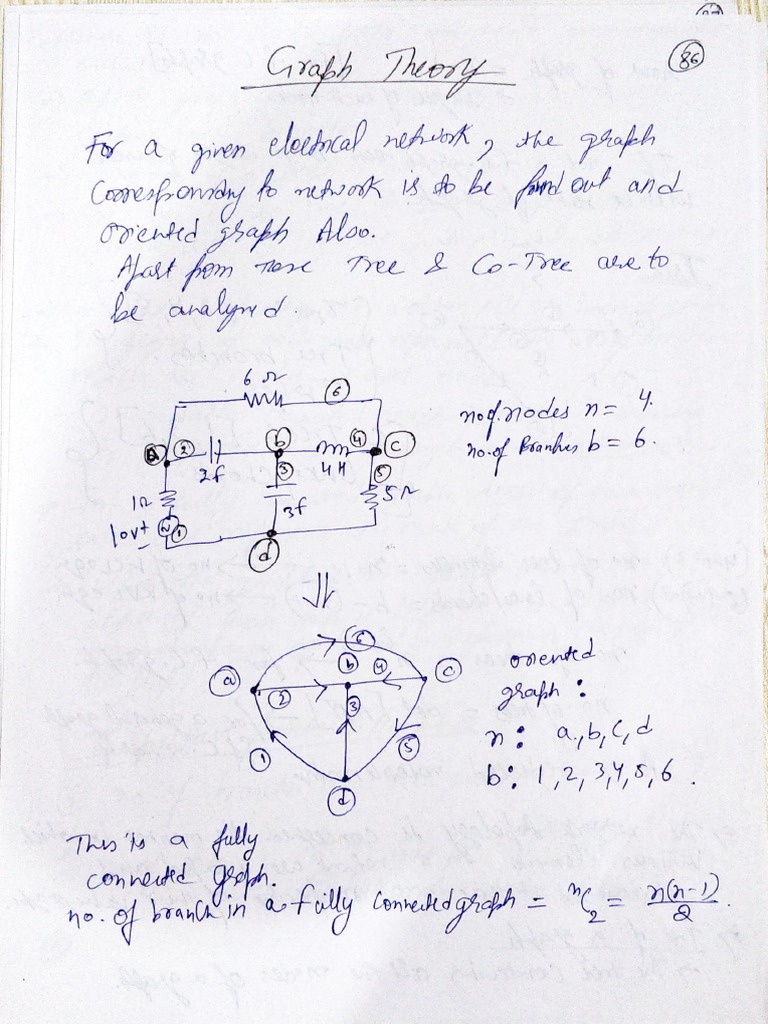 86
Graph Theory
For a given electrical network, the graph
Corresponding to network is to be find out and
oriented graph Also.
Apart from these Tree & Co-Tree are to
be analyzed.
6 Ω
6
a 2 b 4 C
2f 3 4H 5
1Ω 3f 5Ω
10v + 1
-
d
no of nodes n = 4.
no. of Branches b = 6.
⇓
6
a b 4 c
2 3
1 5
d
oriented
graph :
n : a, b, c, d
b : 1, 2, 3, 4, 5, 6.
This is a fully
connected graph.
no. of branch in a fully connected graph = ⁿC₂ = n(n-1)/2.